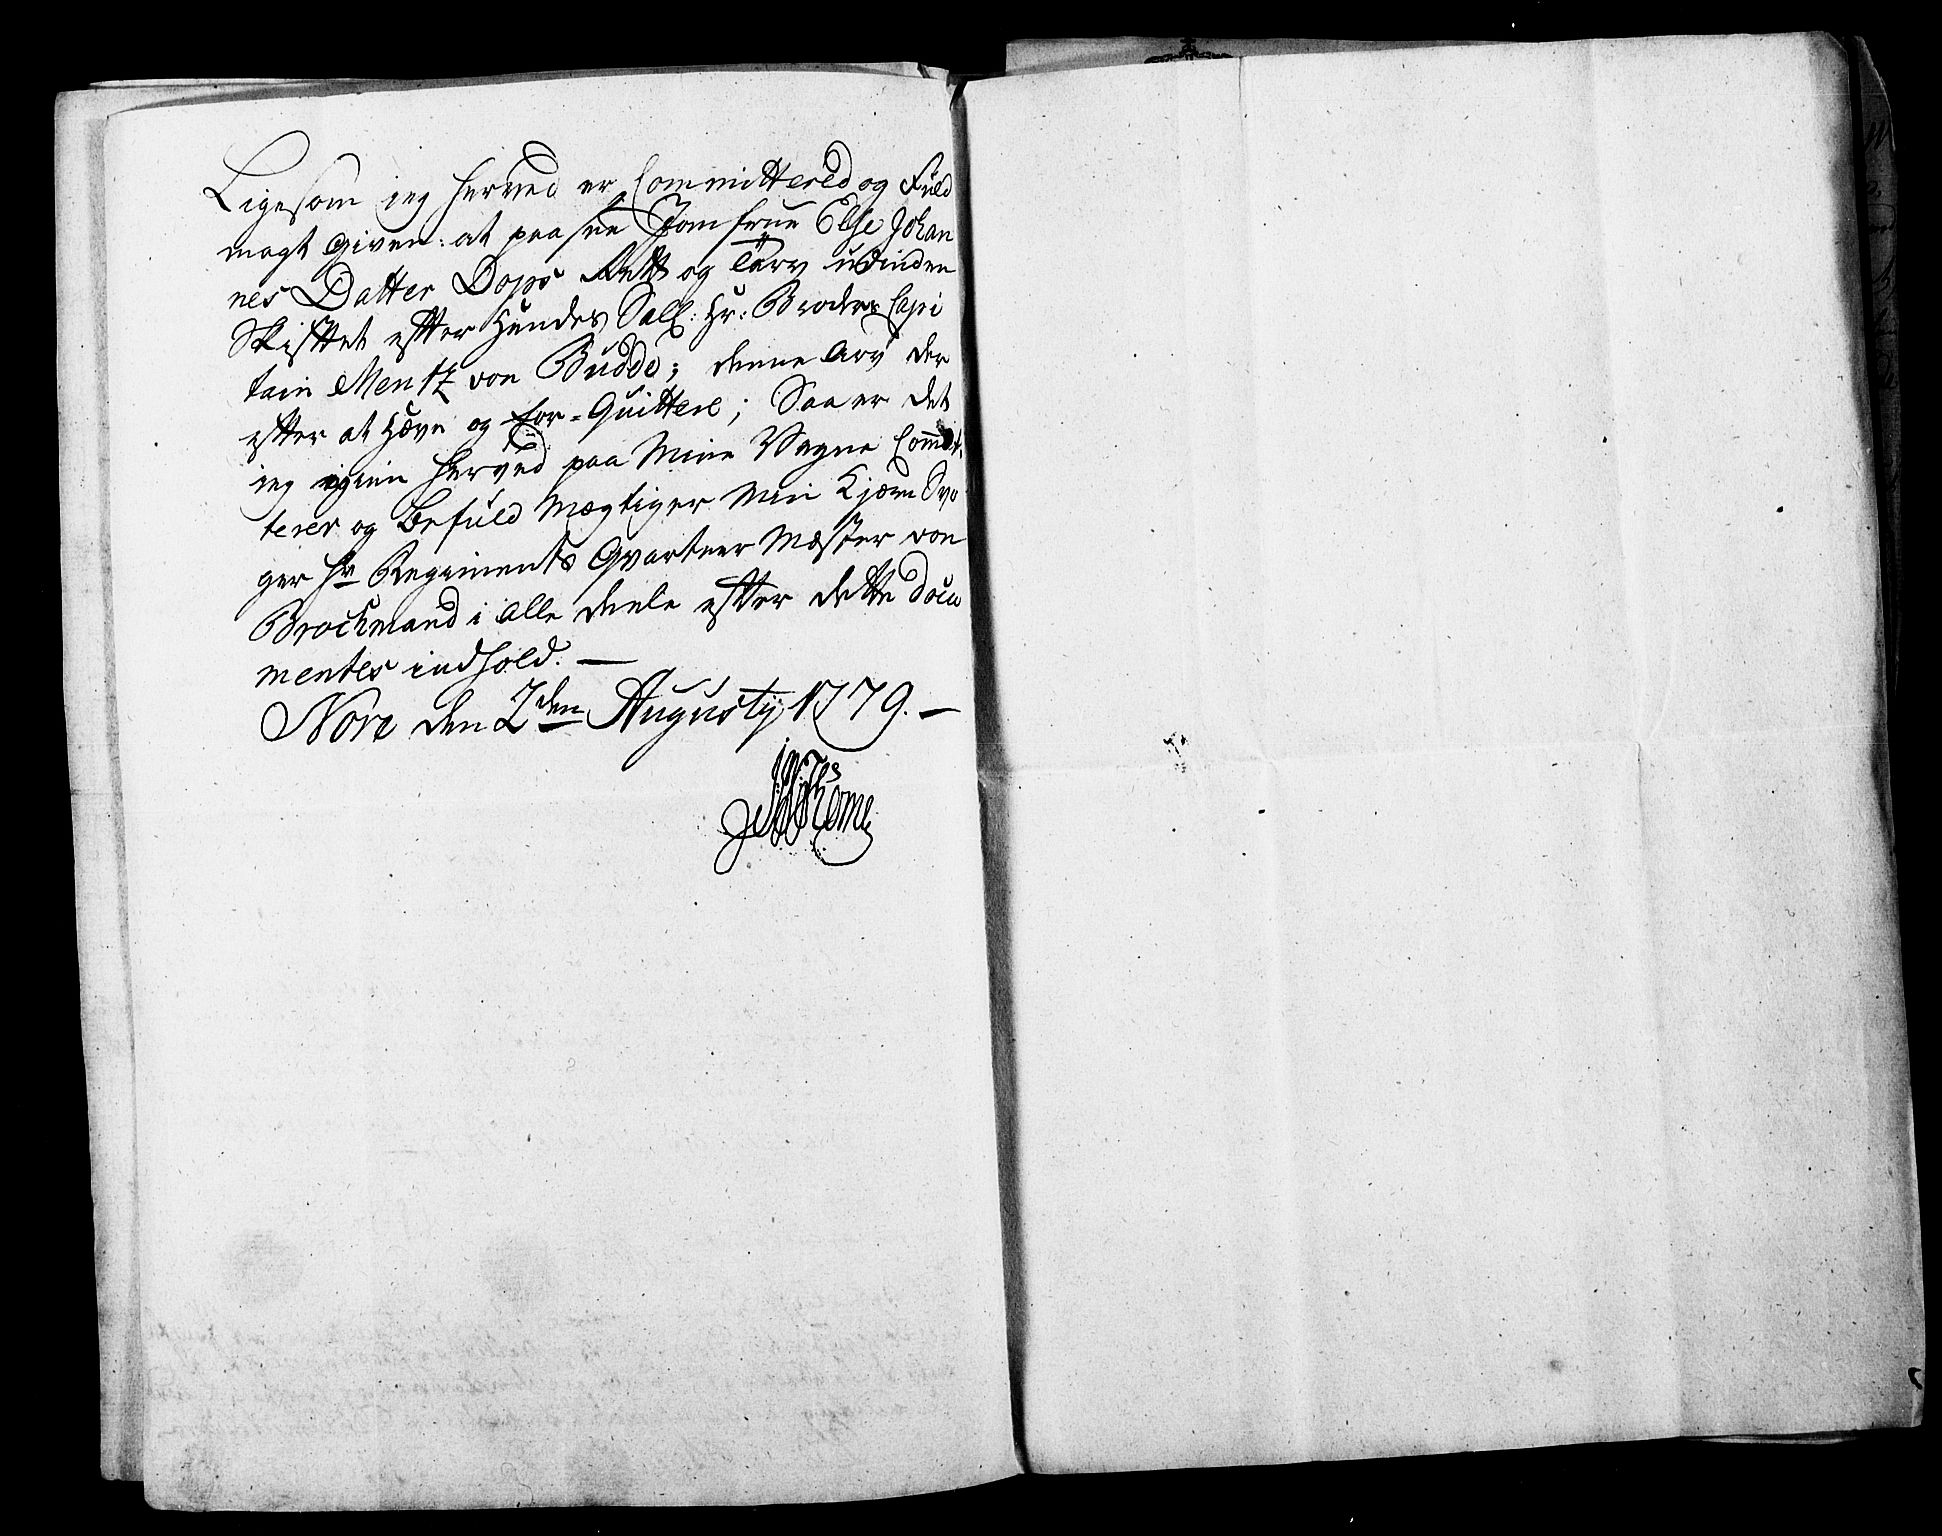 Ligesom jeg herved er Committered og Fuld
magt given: at paa see Jomfrue Else Johan
nes Datter Dops Rett og Tarv udinden
Skifttet effter Hendes Sall: Hr: Broder Capi
tain Mentz von Budde; denne Arv der
effter at Hæve og for-Quittere; Saa er det
jeg igien herved paa Mine Vegne Commit-
terer og Befuld Mægtiger Min Kjære Svo
ger Hr Regiments Qvarteer Mæster von
Brochmand i alle deele effter dette Docu
mentes indhold. —
Nore den 2den Augusty 1779. —